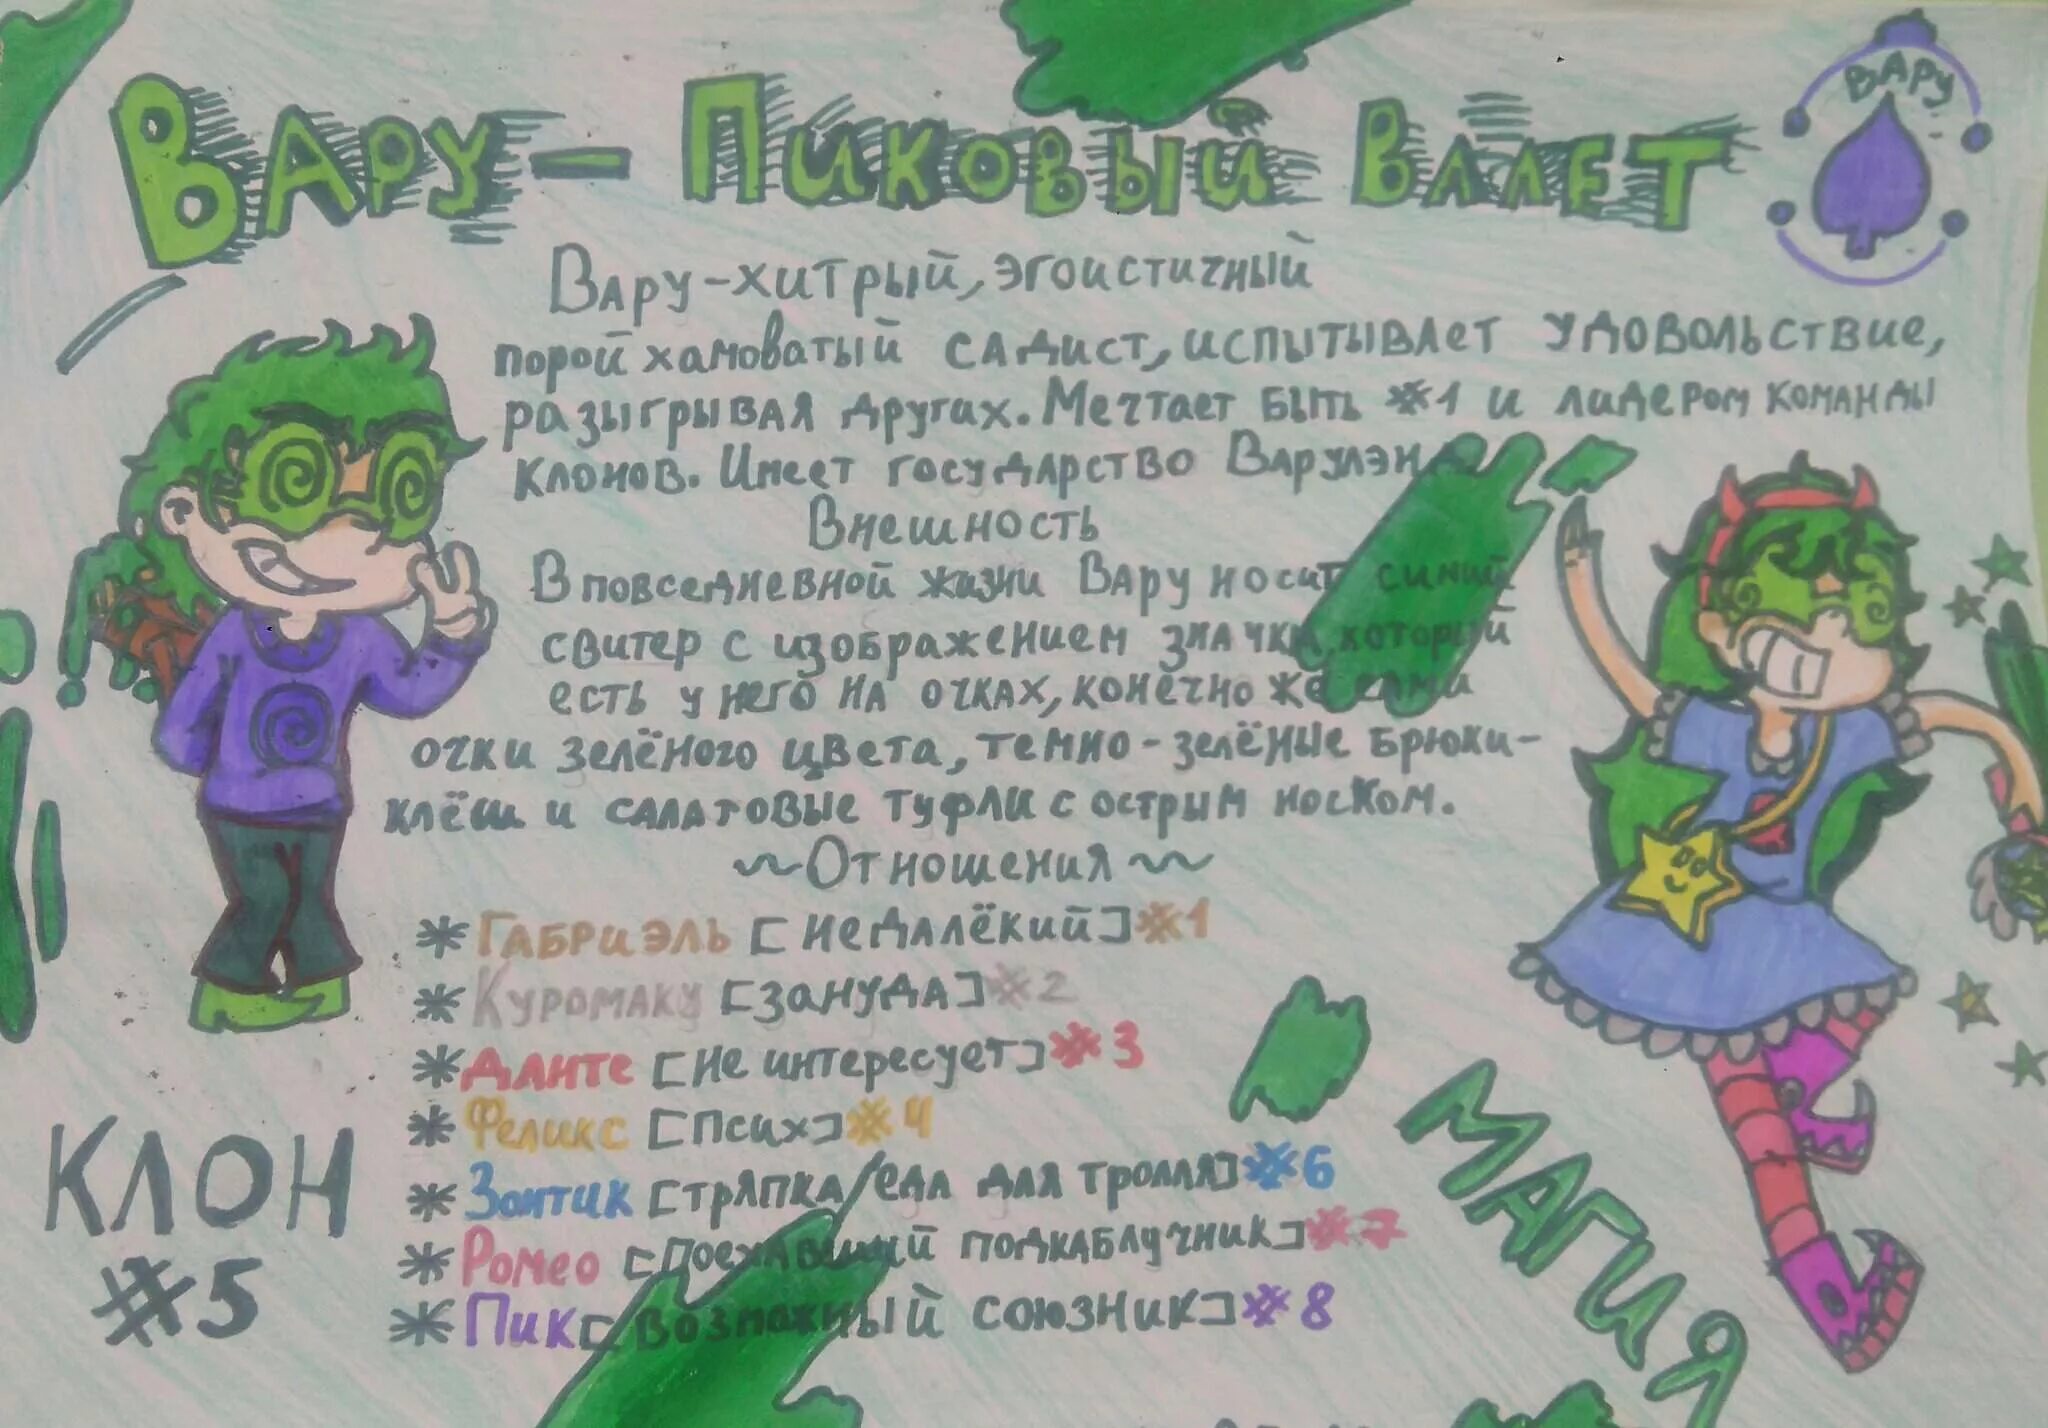 Вару - Пиковый Валет
Вару
Вару-хитрый, эгоистичный
порой хамоватый садист, испытывает удовольствие,
разыгрывая других. Мечтает быть #1 и лидером команды
клонов. Имеет государство Варулэнд
Внешность
В повседневной жизни Вару носит синий
свитер с изображением значка, который
есть у него на очках, конечно же сами
очки зелёного цвета, темно-зелёные брюки-
клёш и салатовые туфли с острым носком.
~Отношения~
* Габриэль [недалёкий] #1
* Куромаку [зануда] #2
* Данте [не интересует] #3
* Феликс [псих] #4
* Зонтик [тряпка/еда для тролля] #6
* Ромео [поехавший подкаблучник] #7
* Пик [возможный союзник] #8
Клон
#5
Магия